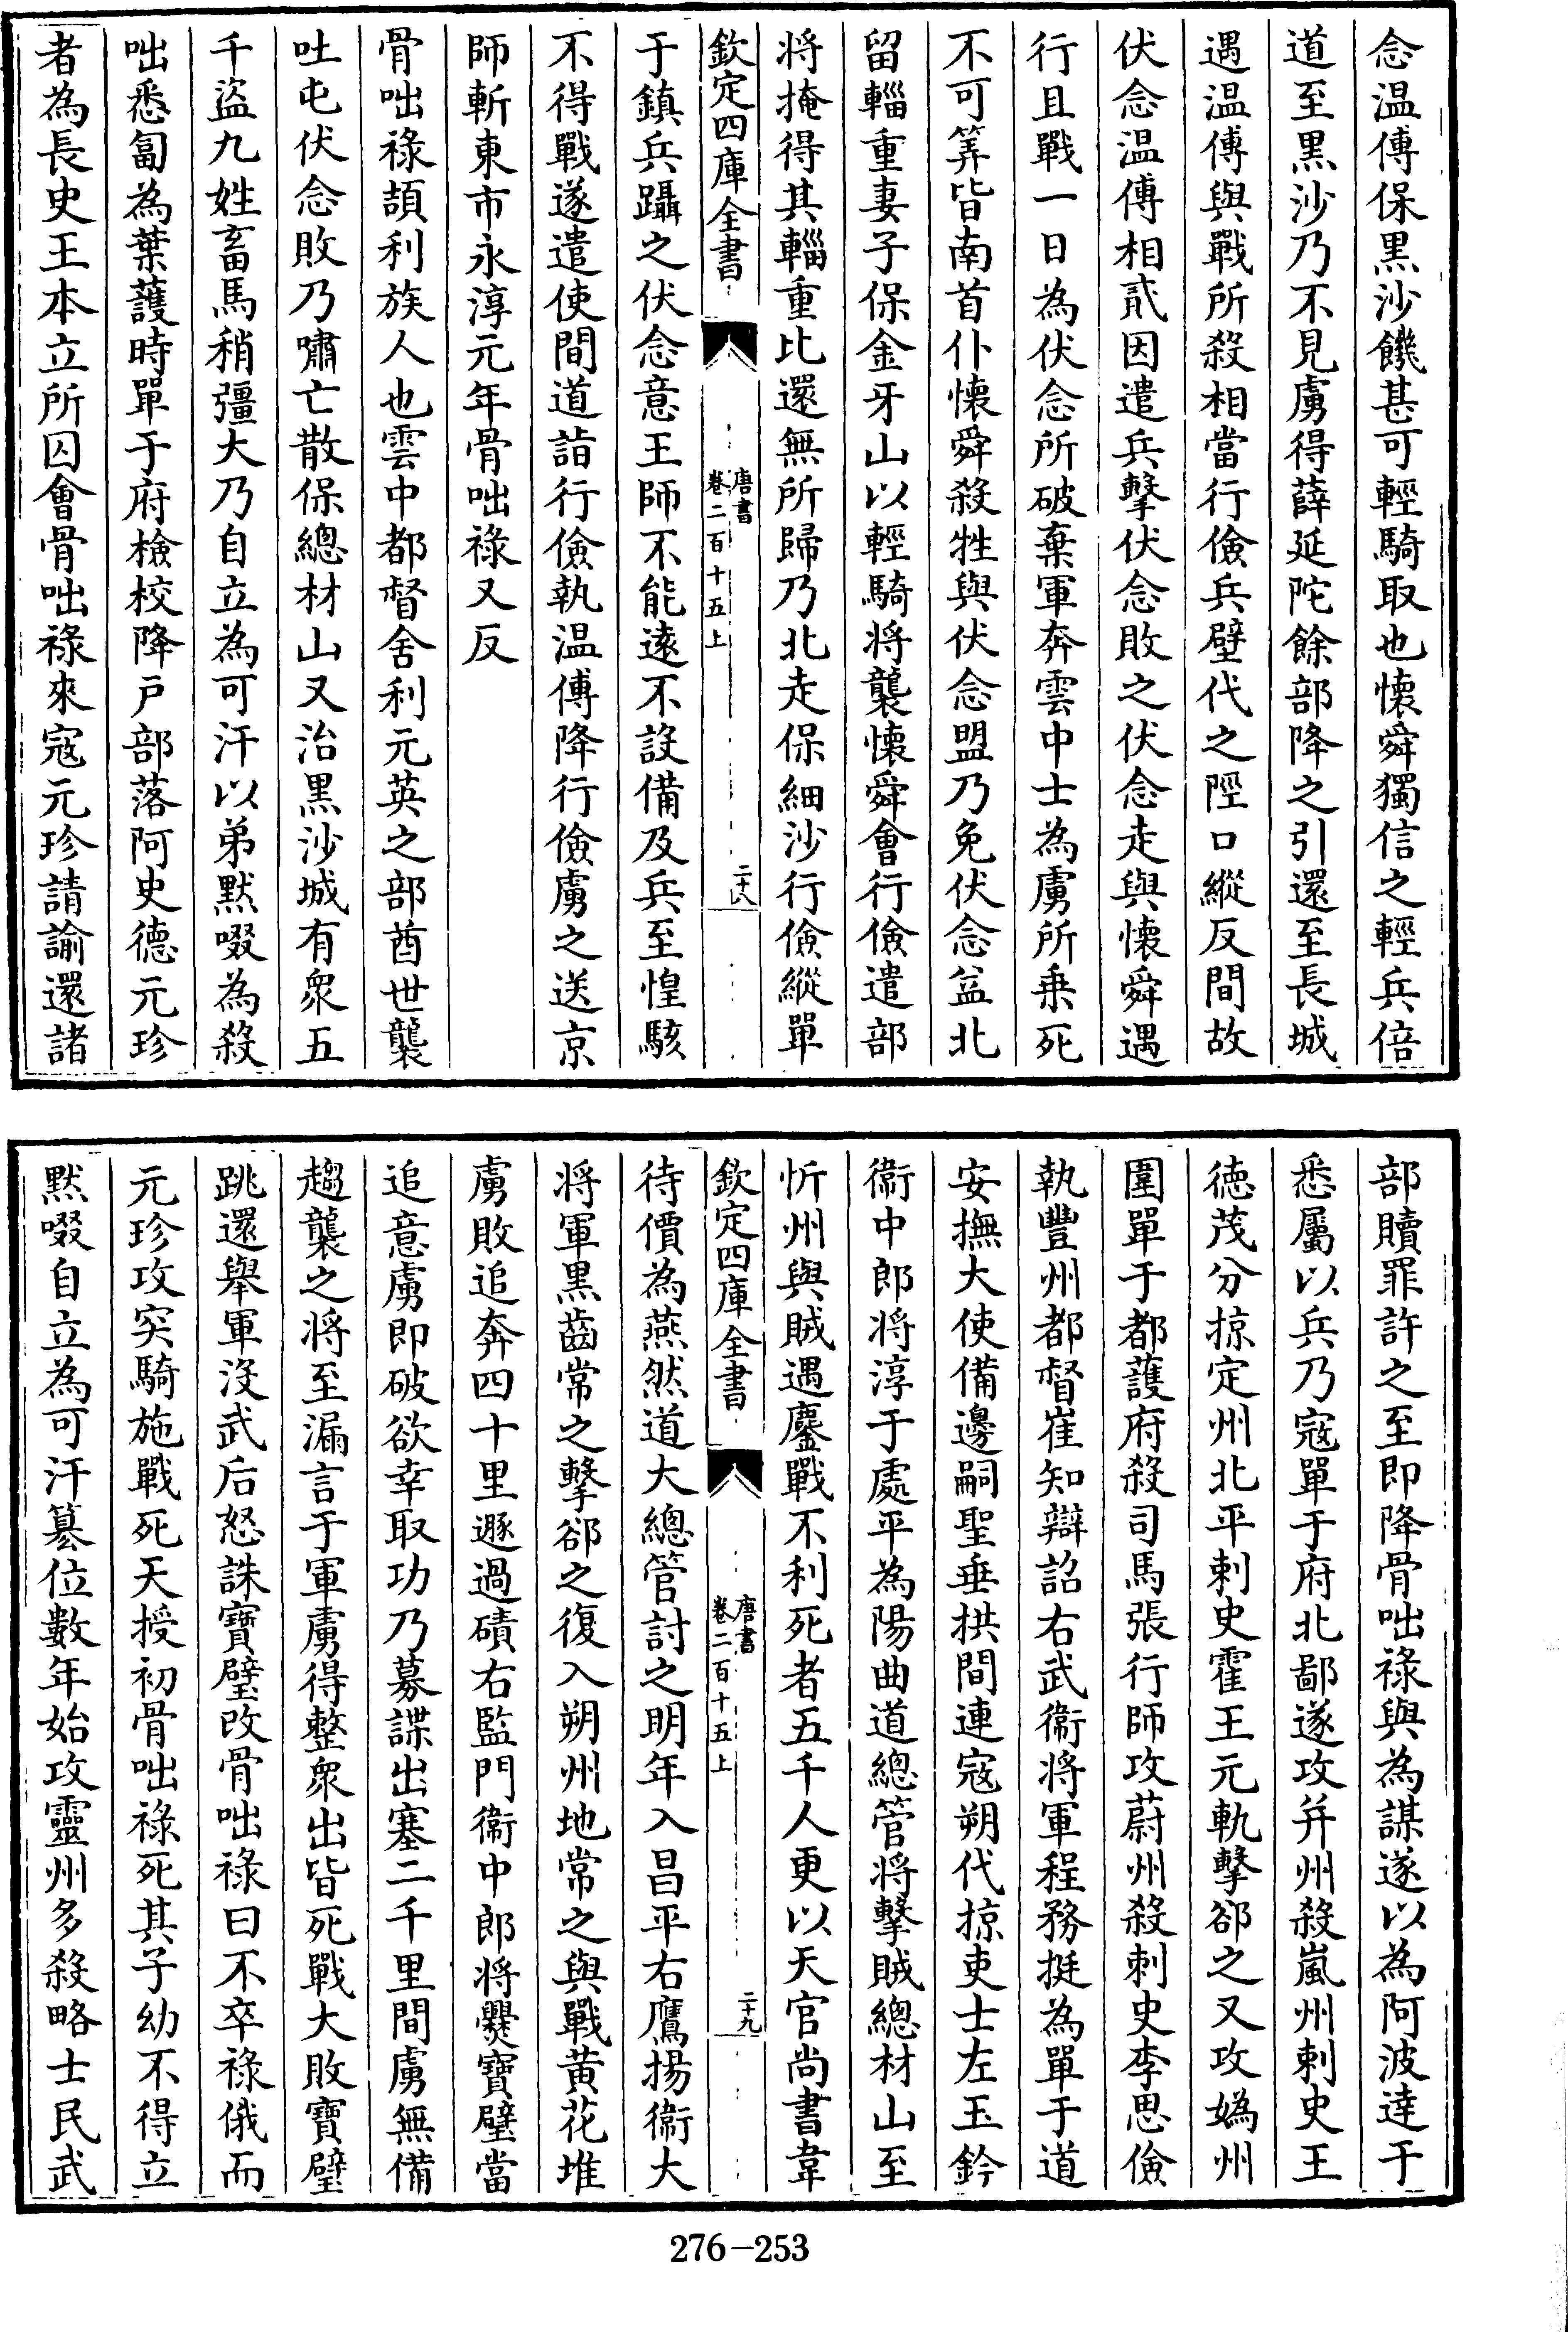 念温傅保黒沙饑甚可輕騎取也懷舜獨信之輕兵倍
道至黒沙乃不見虜得薛延陀餘部降之引還至長城
遇温傅與戰所殺相當行儉兵壁代之陘口縱反間故
伏念温傅相貳因遣兵擊伏念敗之伏念走與懷舜遇
行且戰一日為伏念所破棄軍奔雲中士為虜所乗死
不可筭皆南首仆懷舜殺牲與伏念盟乃免伏念益北
留輜重妻子保金牙山以輕騎将襲懷舜會行儉遣部
将掩得其輜重比還無所歸乃北走保細沙行儉縱單
欽定四庫全書
唐書
卷二百十五上
二十八
于鎮兵躡之伏念意王師不能逺不設備及兵至惶駭
不得戰遂遣使間道詣行儉執温傅降行儉虜之送京
師斬東市永淳元年骨咄祿又反
骨咄祿頡利族人也雲中都督舍利元英之部酋世襲
吐屯伏念敗乃嘯亡散保總材山又治黒沙城有衆五
千盜九姓畜馬稍彊大乃自立為可汗以弟黙啜為殺
咄悉匐為葉護時單于府檢校降戸部落阿史德元珍
者為長史王本立所囚會骨咄祿來寇元珍請諭還諸
部贖罪許之至即降骨咄祿與為謀遂以為阿波達于
悉屬以兵乃寇單于府北鄙遂攻并州殺嵐州刺史王
徳茂分掠定州北平刺史霍王元軌擊郤之又攻媯州
圍單于都護府殺司馬張行師攻蔚州殺刺史李思儉
執豐州都督崔知辯詔右武衞将軍程務挺為單于道
安撫大使備邊嗣聖垂拱間連寇朔代掠吏士左玉鈐
衞中郎将淳于處平為陽曲道總管将擊賊總材山至
忻州與賊遇鏖戰不利死者五千人更以天官尚書韋
欽定四庫全書
唐書
卷二百十五上
二十九
待價為燕然道大總管討之明年入昌平右鷹揚衞大
将軍黒齒常之擊郤之復入朔州地常之與戰黄花堆
虜敗追奔四十里遯過磧右監門衞中郎将爨寶璧當
追意虜即破欲幸取功乃募諜出塞二千里間虜無備
趨襲之将至漏言于軍虜得整衆出皆死戰大敗寶璧
跳還舉軍沒武后怒誅寶璧改骨咄祿曰不卒祿俄而
元珍攻突騎施戰死天授初骨咄祿死其子幼不得立
黙啜自立為可汗簒位數年始攻靈州多殺略士民武
276-253